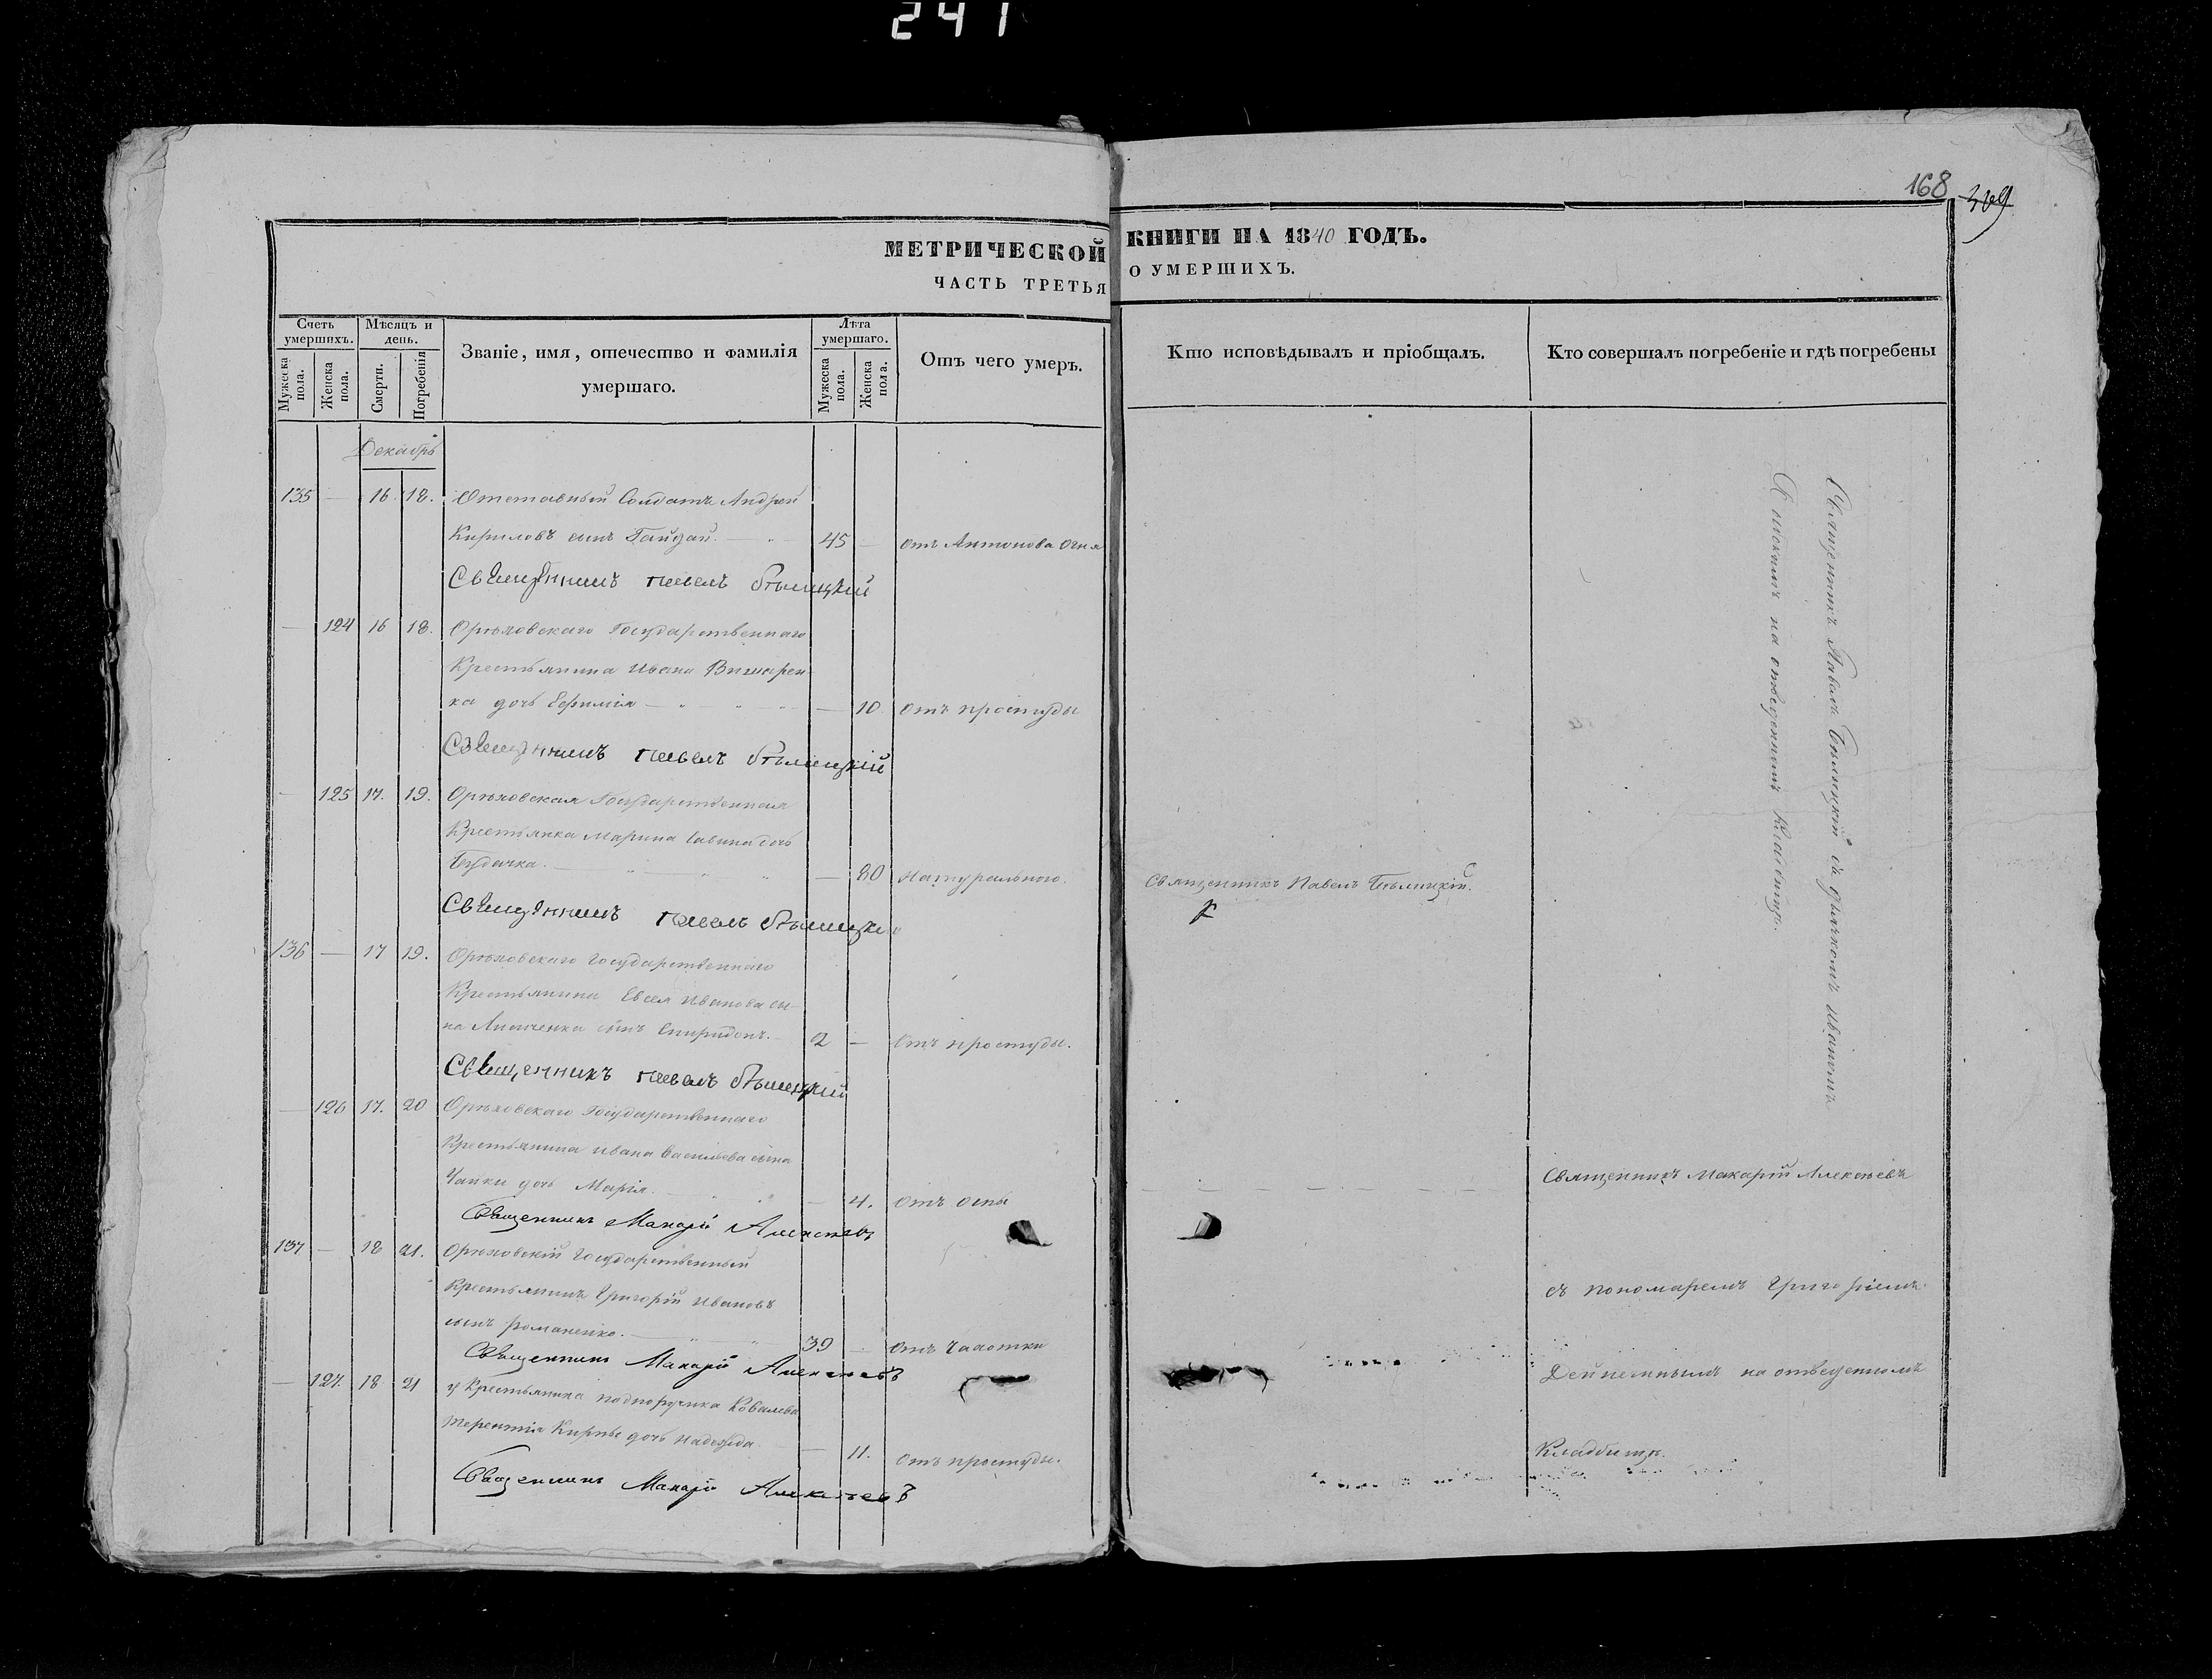 241
168
309
МЕТРИЧЕСКОЙ КНИГИ НА 1840 ГОДЪ.
ЧАСТЬ ТРЕТЬЯ О УМЕРШИХЪ.
Счетъ умершихъ.
Мужеска пола.
Женска пола.
Мѣсяцъ и день.
Смерти.
Погребенія
Званіе, имя, отечество и фамилія
умершаго.
Лѣта умершаго.
Мужеска пола.
Женска пола.
Отъ чего умеръ.
Кто исповѣдывалъ и пріобщалъ.
Кто совершалъ погребеніе и гдѣ погребены
Декабрь
135 — 16 18. Отставный Солдатъ Андрей
Кириловъ сынъ Гайдай. — 45 — Отъ Антонова Огня
Священникъ Павелъ Бѣлицкій
— 124 16 18. Орѣховскаго Государственнаго
Крестьянина Ивана
ка дочь Ефимія — 10 Отъ простуды
Священникъ Павелъ Бѣлицкій
— 125 17. 19. Орѣховская Государственная
Крестьянка Марина Савина дочь
— 80 Натурально.
Священникъ Павелъ Бѣлицкій.
Священникъ Павелъ Бѣлицкій
136 — 17 19. Орѣховскаго Государственнаго
Крестьянина Евсея Иванова сы-
на сынъ Спиридонъ. 2 — Отъ простуды.
Священникъ Павелъ Бѣлицкій
— 126 17. 20 Орѣховскаго Государственнаго
Крестьянина Ивана Васильева сына
Чайки дочь Марія. — 4. Отъ оспы
Священникъ Макарій Алексѣевъ
137 — 18 21. Орѣховскій Государственный
Крестьянинъ Григорій Ивановъ
сынъ Романенко. 39 — Отъ Чахотки
Священникъ Макарій Алексѣевъ
— 127. 18 21 У Крестьянина подпоручика Ковалева
Терентія Кирпы дочь Надежда — 11. Отъ простуды.
Священникъ Макарій Алексѣевъ
Священникъ Павелъ Бѣлицкій съ дьячкомъ Иваномъ
на отведенномъ Кладбищѣ.
Священникъ Макарій Алексѣевъ
съ пономаремъ Григоріемъ
на отведенномъ
Кладбищѣ.